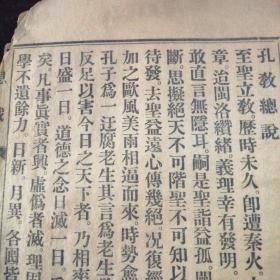 孔教總說
至聖立教。歷時未久。卽遭秦火。
章。治閩洛纘緒。義理幸有發明。
敢直言無隱耳。嗣是聖詣益孤。闡
斷思擬絕天不可階聖不可知以
待發。去聖益遠。心傳幾絕。況復經
加之歐風美雨相逼而來。時勢愈
孔子爲一迂腐老生其言爲老生
反足以害今日之天下者。乃相率
日盛一日。道德之念日滅一日。
矣。凡事眞實者興。虛僞者滅。理固
學不遺餘力。日新月異。各國皆